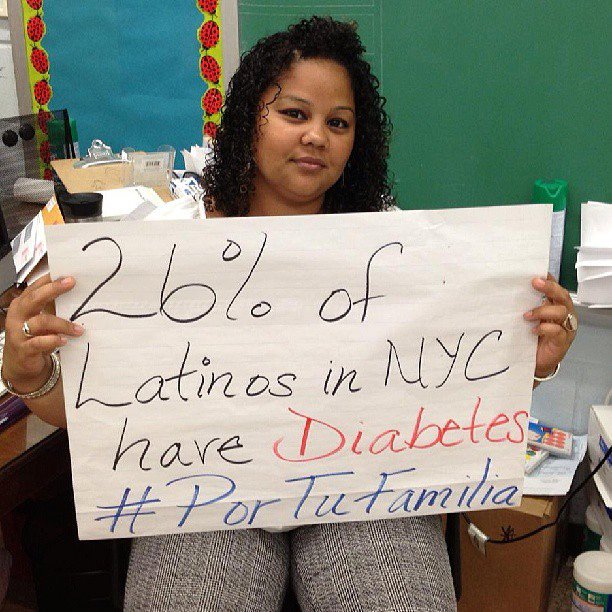 26% of
Latinos in NYC
have Diabetes
#PorTuFamilia